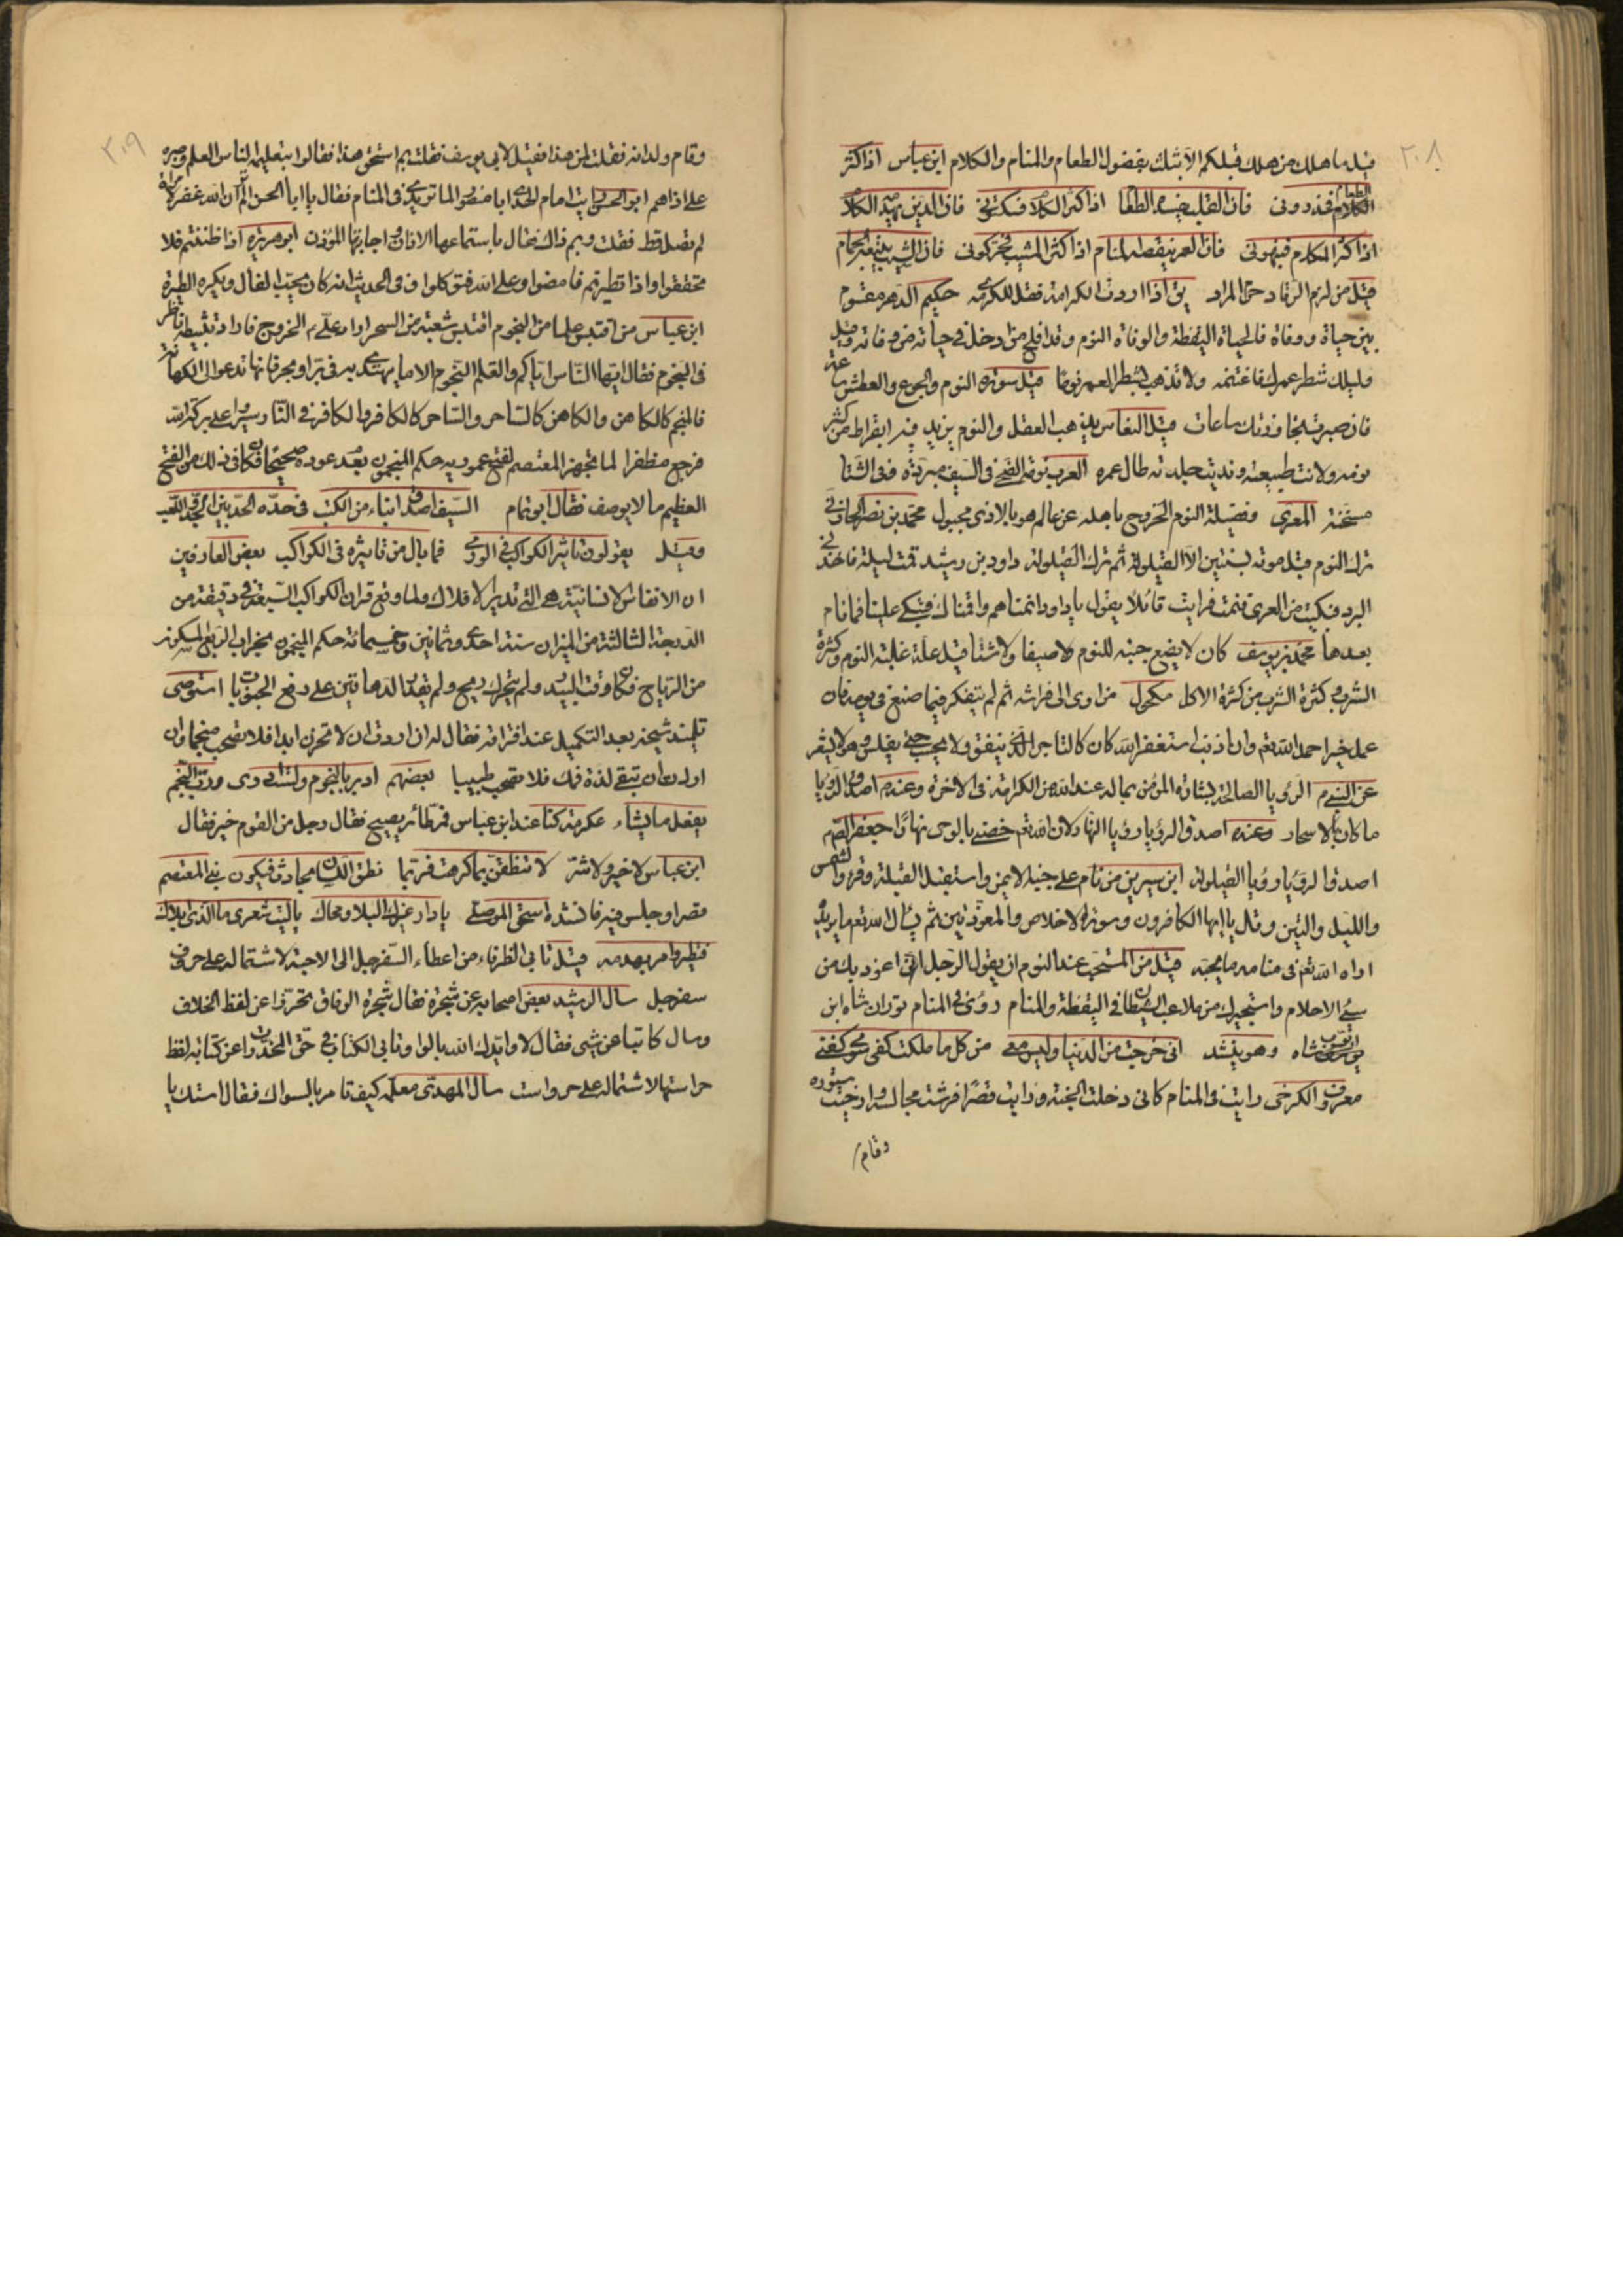 ٢٠٨
قيل ما هلك من هلك قبلكم الا بثلث بفضول الطعام والمنام والكلام ابن عباس اذا كثر
الطعام
الكلام فنذروني فان القلب يفسده الطعا اذا كثر الكلا فسكتوني فان الدين يهدمه الكلا
اذا كثر المنام فنبهوني فان العمر ينقصه المنام اذا كثر المشيب فحركوني فان الشيب يتبعه الحمام
قيل من لزم الرقاد حرم المراد يق اذا اردت الكرامة فقل للكرى مه حكيم الدهر مقسوم
بين حياة ووفاة فالحياة اليقظة والوفاة النوم وقد افلح من ادخل في حياته من وفاته وقيل
فليلك شطر عمرك فاغتنمه ولا تذهب بشطر العمر نوما قيل سورة النوم والجوع والعطش ساعة
فان صبرت تجاوزتك ساعات قيل النعاس يذهب العقل والنوم يزيد فيه ابقراط من كثر
نومه ولانت طبيعته ونديت جلدته طال عمره العرب نومة الضحى في الصيف مبردة وفي الشتا
مسخنة المعري وفضيلة النوم الخروج باهله عن عالم هو بالاذى مجبول محمد بن نصر الحارثي
ترك النوم قبل موته بسنتين الا القيلولة ثم ترك القيلولة داود بن رشيد قمت ليلة فاخذني
البرد فبكيت من العرى فنمت فرايت قائلا يقول يا داود انمناهم واقمناك فتبكي علينا فما نام
بعدها محمد بن يوسف كان لا يضع جنبه للنوم لا صيفا ولا شتا قيل علة غلبة النوم وكثرة
الشرب كثرة الشرب من كثرة الاكل مكحول من اوى الى فراشه ثم لم يتفكر فيما صنع في يومه فان
عمل خيرا حمد الله تعم وان اذنب استغفر الله كان كالتاجر الذي ينفق ولا يحسب حتى يفلس وهو لا يشعر
عن النبي م الرؤيا الصالحة بشارة المؤمن بما له عند الله من الكرامة في الاخرة وعنه م اصدق الرؤيا
ما كان بالاسحار وعنه اصدق الرؤيا رؤيا النهار لان الله تعم خصني بالوحى نهارا جعفر الصم
اصدق الرؤيا رؤيا القيلولة ابن سيرين من نام على جنبه الايمن واستقبل القبلة وقرء والشمس
والليل والتين وقل يا ايها الكافرون وسورة الاخلاص والمعوذتين ثم يسال الله تعم ما يريد
اراه الله تعم في منامه ما يحبه قيل من المستحب عند النوم ان يقول الرجل اللهم اني اعوذ بك من
سئ الاحلام واستجيرك من ملاعب الشيطان في اليقظة والمنام روئ في المنام توران شاه ابن
شاه وهو ينشد اني خرجت من الدنيا وليس معي من كل ما ملكت كفي سوى كفني
معروف الكرخى رايت في المنام كاني دخلت الجنة ورايت قصرا فرشت مجالسه وارخيت ستوره
وقام
٢٠٩
وقام ولدانه فقلت لمن هذا فقيل لابي يوسف فقلت بم استحق هذا فقالوا بتعليمه الناس العلم وصبره
على اذاهم ابو الحسن رايت امام الهدى ابا منصور الماتريدى في المنام فقال يا ابا الحسن الم تر ان الله غفر لامراة
لم تصل قط فقلت وبم ذاك فقال باستماعها الاذان واجابتها المؤذن ابو هريره اذا ظننتم فلا
تحققوا واذا تطيرتم فامضوا وعلى الله فتوكلوا في الحديث انه كان يحب الفال ويكره الطيرة
ابن عباس من اقتبس علما من النجوم اقتبس شعبة من السحر اراد علي م الخروج فاراد تثبيطه ناظر
في النجوم فقال ايها الناس اياكم والتعلم النجوم الا ما يهتدى به في بر او بحر فانها تدعو الى الكهانة
فالمنجم كالكاهن والكاهن كالساحر والساحر كالكافر والكافر في النار سيروا على بركة الله
فرجع مظفرا لما تجهز المعتصم لفتح عموريه حكم المنجمون بعدم عوده صحيحا فكان في ذلك من الفتح
العظيم ما لا يوصف فقال ابو تمام السيف اصدق انباء من الكتب في حده الحد بين الجد واللعب
وقيل يقولون تاثير الكواكب في الورى فما بال من تاثيره في الكواكب بعض العارفين
ان الانفاس الانسانية هي التي تدير الافلاك ولما وقع قران الكواكب السبعة في دقيقة من
الدرجة الثالثة من الميزان سنة احدى وثمانين وخمسمائة حكم المنجمون بخراب الربع المسكون
من الرياح فكان وقت البيدر ولم يتحرك ريح ولم يقدر الدهاقين على دفع الحبوب استوصى
تلميذ شيخه بعد التكميل عند افتراقه فقال له ان اردت ان لا تحزن ابدا فلا تصحب منجما وان
اردت ان تبقى لذة فمك فلا تصحب طبيبا بعضهم ادبر بالنجوم ولست ادرى ورب النجم
يفعل ما يشاء عكرمة كنا عند ابن عباس فمر طائر يصيح فقال رجل من القوم خير فقال
ابن عباس لا خير ولا شر لا تنطقن بما كرهت فربما نطق اللسان بحادث فيكون بنى المعتصم
قصرا وجلس فيه فانشده اسحق الموصلي يا دار غيرك البلا ومحاك يا ليت شعرى ما الذى ابلاك
فتطير وامر بهدمه قيل تابى الظرفاء من اعطاء السفرجل الى الاحبة لاشتماله على حرف
سفر جل سال الرشيد بعض اصحابه عن شجرة فقال شجرة الوفاق تحرزا عن لفظ الخلاف
وسال كاتبا عن شيى فقال لا وايدك الله بالواو تابى الكتاب في حق المخدرات واعن كتابه لفظ
حراستها لاشتماله على حر واست سال المهدى معلمه كيف تامر بالسواك فقال استك يا